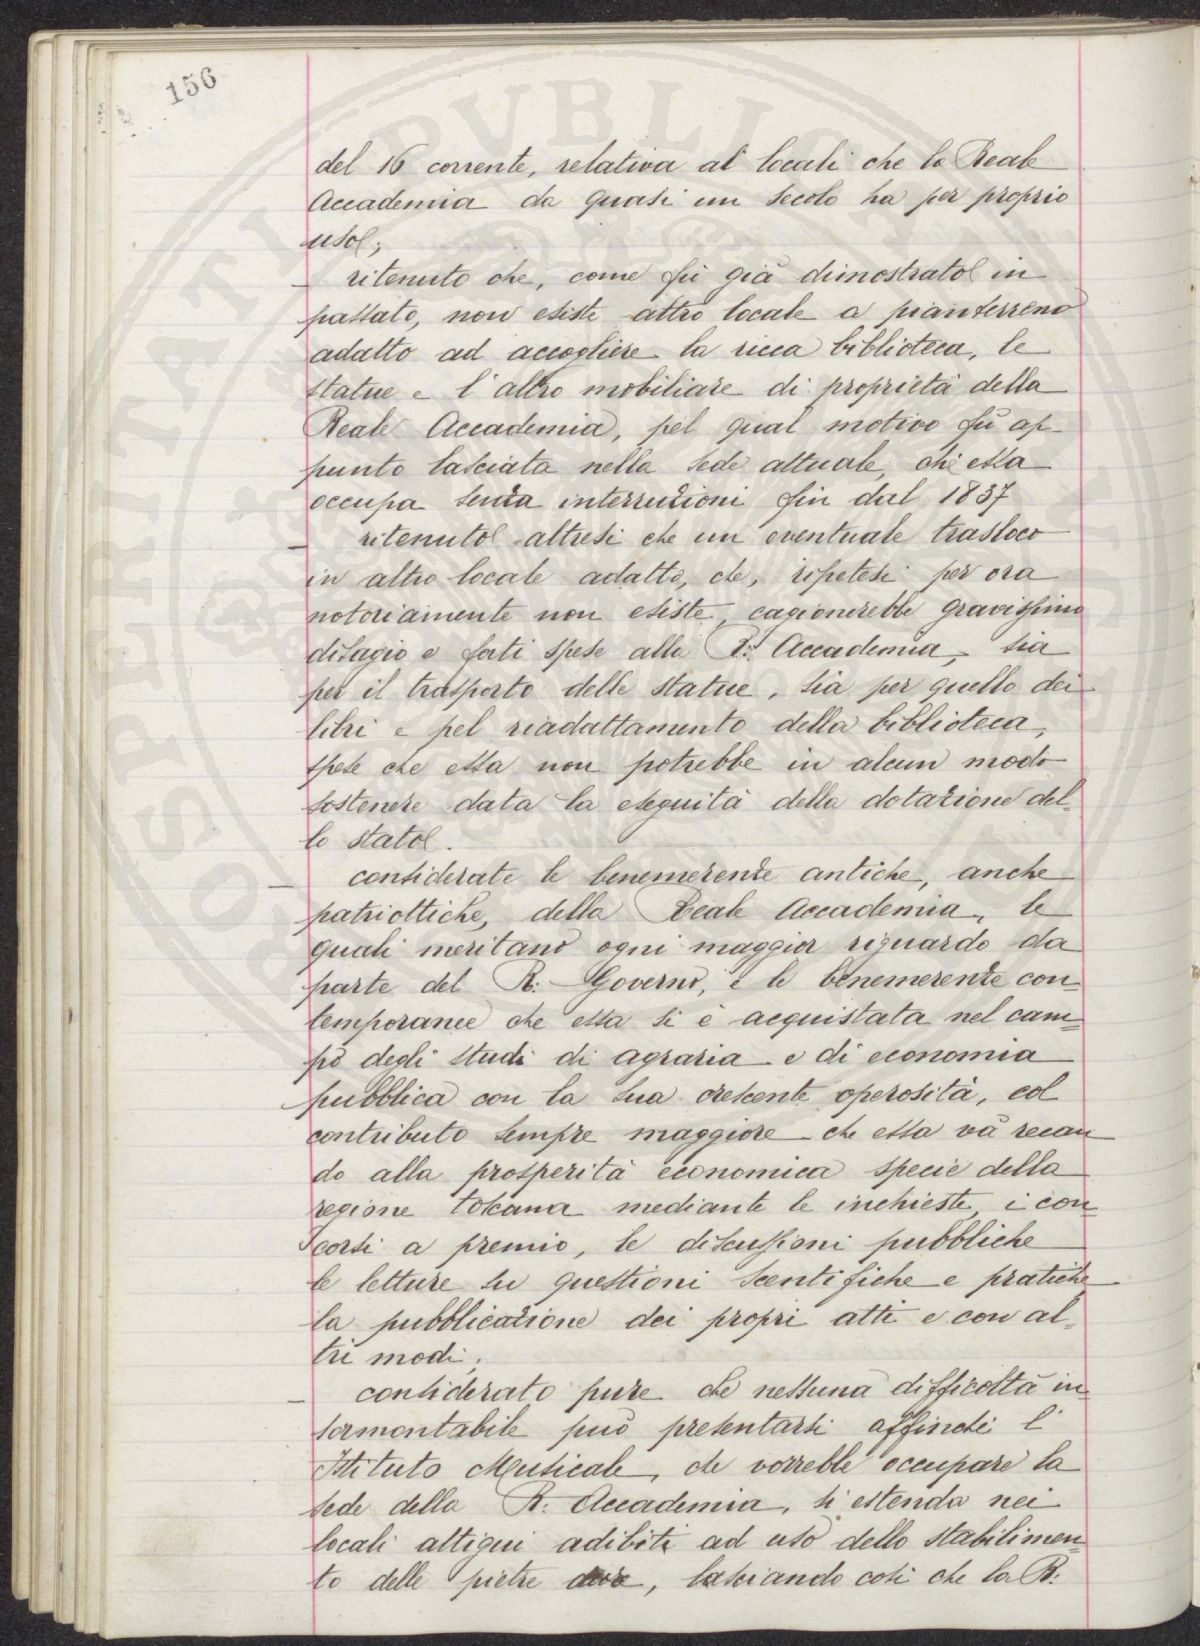 156
del 16 corrente, relativa ai locali che la Reale
Accademia da quasi un secolo ha per proprio
uso;
– ritenuto che, come fù già dimostrato in
passato, non esiste altro locale a pianterreno
adatto ad accogliere la ricca biblioteca, le
statue e l'altro mobiliare di proprietà della
Reale Accademia, pel qual motivo fù ap-
punto lasciata nella sede attuale, che essa
occupa senza interruzioni fin dal 1837
– ritenuto altresì che un eventuale trasloco
in altro locale adatto, che, ripetesi per ora
notoriamente non esiste, cagionerebbe gravissimo
disagio e forti spese alla R: Accademia, sia
per il trasporto delle statue, sia per quello dei
libri e pel riadattamento della biblioteca,
spese che essa non potrebbe in alcun modo
sostenere data la eseguità della dotazione del-
lo stato.
– considerate le benemerenze antiche, anche
patriottiche, della Reale Accademia, le
quali meritano ogni maggior riguardo da
parte del R: Governo, e le benemerenze con-
temporanee che essa si è acquistata nel cam-
po degli studi di agraria e di economia
pubblica con la sua crescente operosità, col
contributo sempre maggiore che essa và recan
do alla prosperità economica specie della
regione toscana mediante le inchieste, i con-
corsi a premio, le discussioni pubbliche
le letture su questioni scentifiche e pratiche
la pubblicazione dei propri atti e con al-
tri modi;
– considerato pure che nessuna difficoltà in-
sormontabile può presentarsi affinchè l'
Istituto Musicale, che vorrebbe occupare la
sede della R. Accademia, si estenda nei
locali attigui adibiti ad uso dello stabilimen-
to delle pietre dure, lasciando così che la R: